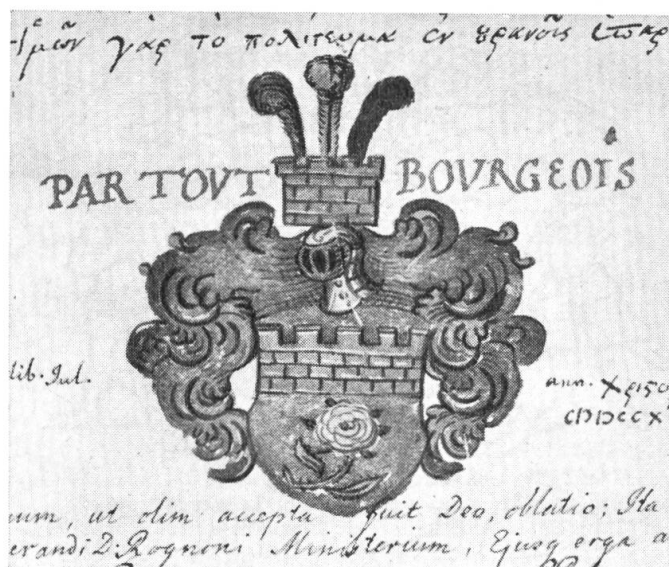 ἡμῶν γὰρ τὸ πολίτευμα ἐν ȣρανοῖς
PAR TOVT BOVRGEOIS
lib. Jul.
ann. Χρισ
CIↃIↃCCX
num, ut olim accepta fuit Deo, oblatio; Ita
erandi D. Rognoni Ministerium, Ejusq erga a